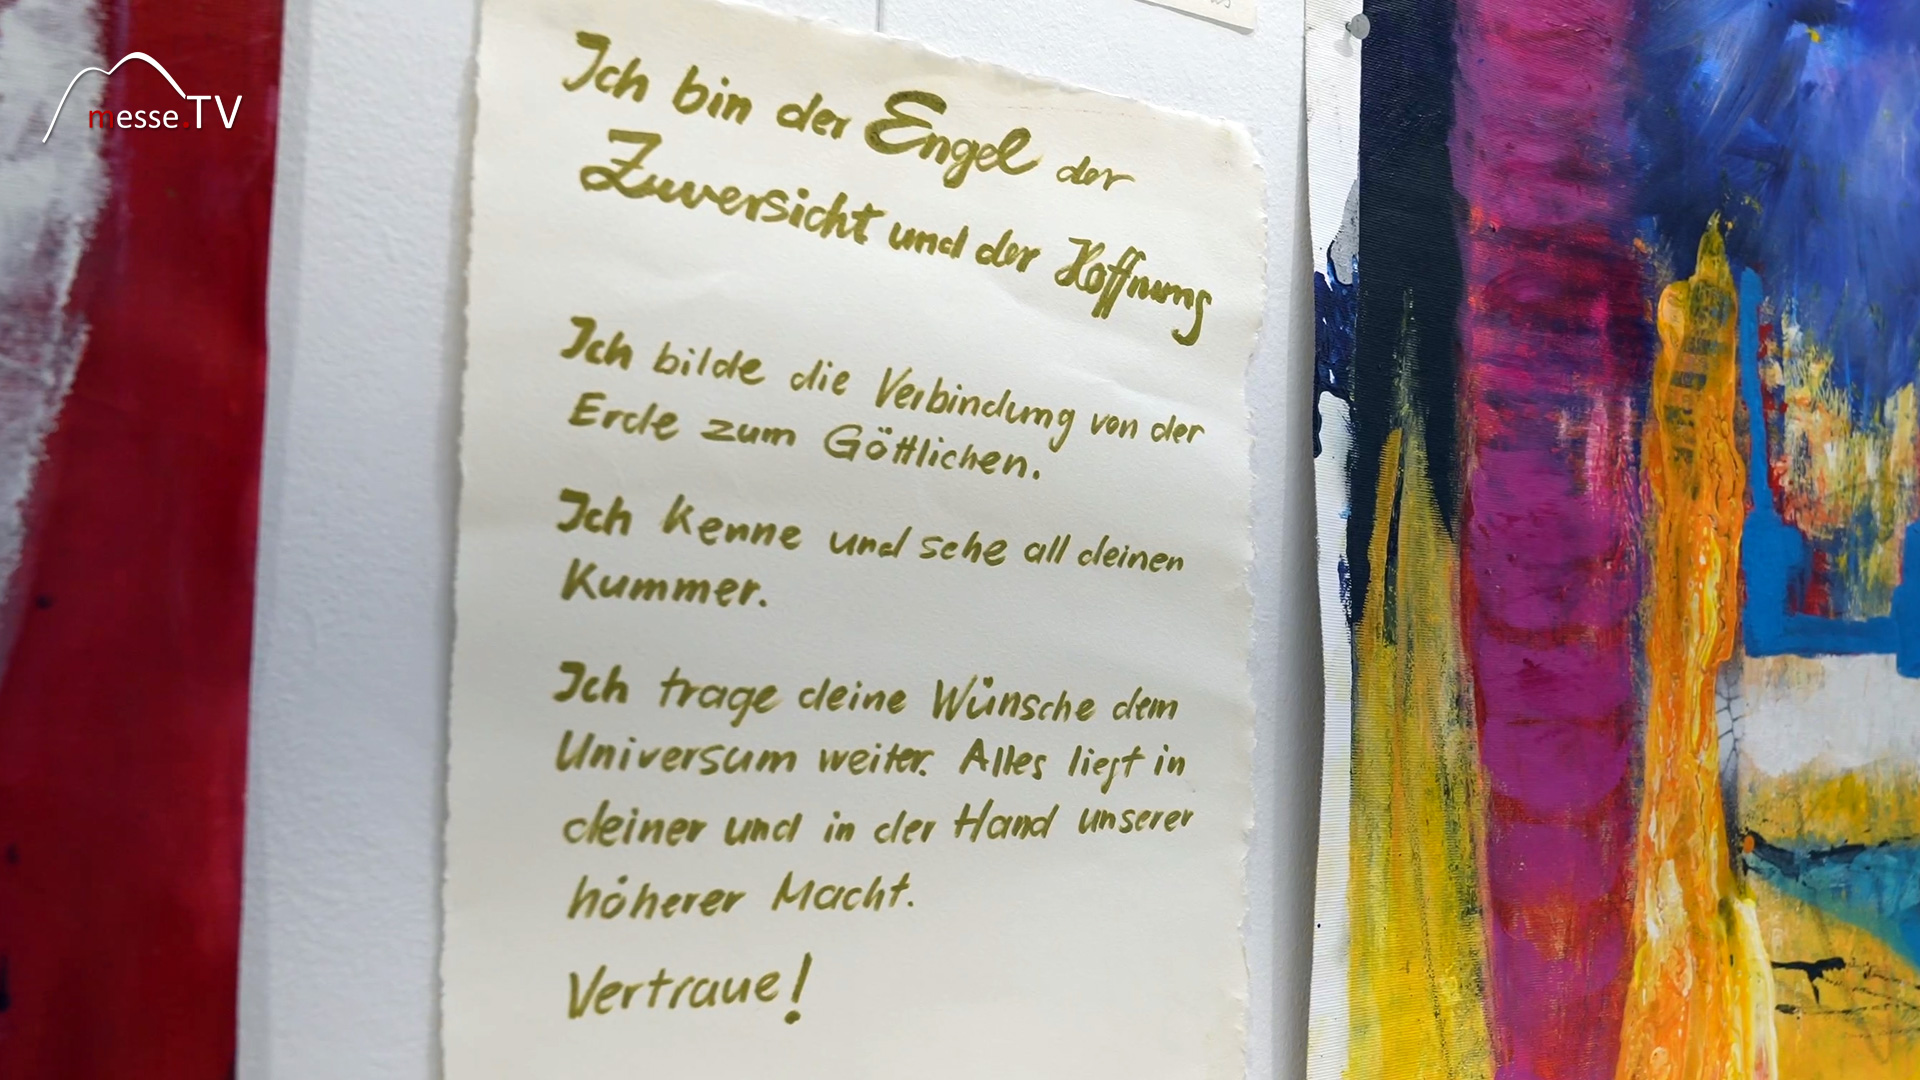 messe.TV
Ich bin der Engel der
Zuversicht und der Hoffnung
Ich bilde die Verbindung von der
Erde zum Göttlichen.
Ich kenne und sehe all deinen
Kummer.
Ich trage deine Wünsche dem
Universum weiter. Alles liegt in
deiner und in der Hand unserer
höherer Macht.
Vertraue!